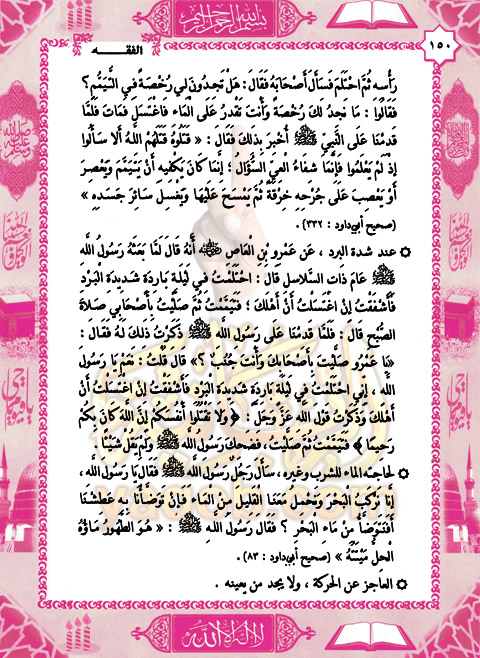 بسم الله الرحمن الرحيم
١٥٠
الفقه
رَأْسِهِ ثُمَّ احْتَلَمَ فَسَأَلَ أَصْحَابَهُ فَقَالَ : هَلْ تَجِدُونَ لِي رُخْصَةً فِي التَّيَمُّمِ ؟
فَقَالُوا : مَا نَجِدُ لَكَ رُخْصَةً وَأَنْتَ تَقْدِرُ عَلَى الْمَاءِ فَاغْتَسَلَ فَمَاتَ فَلَمَّا
قَدِمْنَا عَلَى النَّبِيِّ ﷺ أُخْبِرَ بِذَلِكَ فَقَالَ : « قَتَلُوهُ قَتَلَهُمُ اللَّهُ أَلَا سَأَلُوا
إِذْ لَمْ يَعْلَمُوا فَإِنَّمَا شِفَاءُ الْعِيِّ السُّؤَالُ ؛ إِنَّمَا كَانَ يَكْفِيهِ أَنْ يَتَيَمَّمَ وَيَعْصِرَ
أَوْ يَعْصِبَ عَلَى جُرْحِهِ خِرْقَةً ثُمَّ يَمْسَحَ عَلَيْهَا وَيَغْسِلَ سَائِرَ جَسَدِهِ »
(صحيح أبي داود : ٣٣٢) .
۞ عند شدة البرد ، عَنْ عَمْرِو بْنِ الْعَاصِ رضي الله عنه أَنَّهُ قَالَ لَمَّا بَعَثَهُ رَسُولُ اللَّهِ
ﷺ عَامَ ذَاتِ السَّلَاسِلِ قَالَ : احْتَلَمْتُ فِي لَيْلَةٍ بَارِدَةٍ شَدِيدَةِ الْبَرْدِ
فَأَشْفَقْتُ إِنِ اغْتَسَلْتُ أَنْ أَهْلَكَ ؛ فَتَيَمَّمْتُ ثُمَّ صَلَّيْتُ بِأَصْحَابِي صَلَاةَ
الصُّبْحِ قَالَ : فَلَمَّا قَدِمْنَا عَلَى رَسُولِ اللَّهِ ﷺ ذَكَرْتُ ذَلِكَ لَهُ فَقَالَ :
«يَا عَمْرُو صَلَّيْتَ بِأَصْحَابِكَ وَأَنْتَ جُنُبٌ ؟» قَالَ قُلْتُ : نَعَمْ يَا رَسُولَ
اللَّهِ ، إِنِّي احْتَلَمْتُ فِي لَيْلَةٍ بَارِدَةٍ شَدِيدَةِ الْبَرْدِ فَأَشْفَقْتُ إِنِ اغْتَسَلْتُ أَنْ
أَهْلَكَ وَذَكَرْتُ قَوْلَ اللَّهِ عَزَّ وَجَلَّ : ﴿ وَلَا تَقْتُلُوا أَنْفُسَكُمْ إِنَّ اللَّهَ كَانَ بِكُمْ
رَحِيمًا ﴾ فَتَيَمَّمْتُ ثُمَّ صَلَّيْتُ ، فَضَحِكَ رَسُولُ اللَّهِ ﷺ وَلَمْ يَقُلْ شَيْئًا .
۞ لحاجته الماء للشرب وغيره ، سَأَلَ رَجُلٌ رَسُولَ اللَّهِ ﷺ فَقَالَ يَا رَسُولَ اللَّهِ ،
إِنَّا نَرْكَبُ الْبَحْرَ وَنَحْمِلُ مَعَنَا الْقَلِيلَ مِنَ الْمَاءِ فَإِنْ تَوَضَّأْنَا بِهِ عَطِشْنَا
أَفَنَتَوَضَّأُ مِنْ مَاءِ الْبَحْرِ ؟ فَقَالَ رَسُولُ اللَّهِ ﷺ : « هُوَ الطَّهُورُ مَاؤُهُ
الْحِلُّ مَيْتَتُهُ » (صحيح أبي داود : ٨٣) .
۞ العاجز عن الحركة ، ولا يجد من يعينه .
لا إله إلا الله